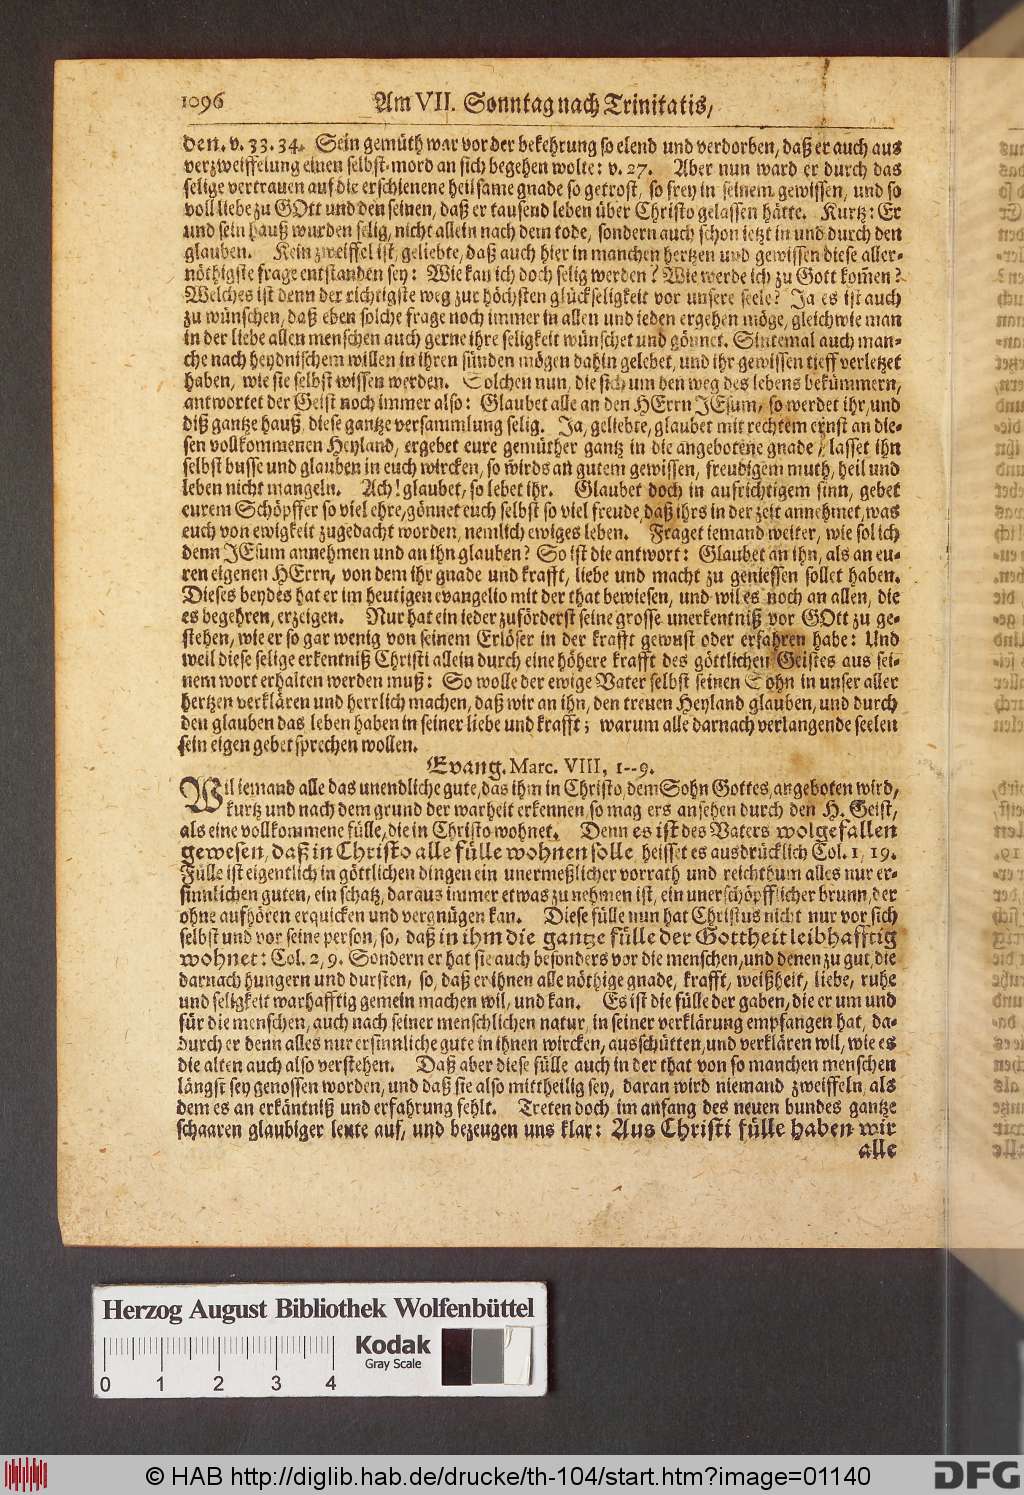 1096 Am VII. Sonntag nach Trinitatis,
den. v. 33. 34. Sein gemüth war vor der bekehrung so elend und verdorben, daß er auch aus
verzweiffelung einen selbst-mord an sich begehen wolte: v. 27. Aber nun ward er durch das
selige vertrauen auf die erschienene heilsame gnade so getrost, so frey in seinem gewissen, und so
voll liebe zu GOtt und den seinen, daß er tausend leben über Christo gelassen hätte. Kurtz: Er
und sein hauß wurden selig, nicht allein nach dem tode, sondern auch schon ietzt in und durch den
glauben. Kein zweiffel ist, geliebte, daß auch hier in manchen hertzen und gewissen diese aller-
nöthigste frage entstanden sey: Wie kan ich doch selig werden? Wie werde ich zu Gott kom̃en?
Welches ist denn der richtigste weg zur höchsten glückseligkeit vor unsere seele? Ja es ist auch
zu wünschen, daß eben solche frage noch immer in allen und ieden ergehen möge, gleichwie man
in der liebe allen menschen auch gerne ihre seligkeit wünschet und gönnet. Sintemal auch man-
che nach heydnischem willen in ihren sünden mögen dahin gelebet, und ihr gewissen tieff verletzet
haben, wie sie selbst wissen werden. Solchen nun, die sich um den weg des lebens bekümmern,
antwortet der Geist noch immer also: Glaubet alle an den HErrn JEsum, so werdet ihr, und
diß gantze hauß, diese gantze versammlung selig. Ja, geliebte, glaubet mit rechtem ernst an die-
sen vollkommenen Heyland, ergebet eure gemüther gantz in die angebotene gnade, lasset ihn
selbst busse und glauben in euch wircken, so wirds an gutem gewissen, freudigem muth, heil und
leben nicht mangeln. Ach! glaubet, so lebet ihr. Glaubet doch in aufrichtigem sinn, gebet
eurem Schöpffer so viel ehre, gönnet euch selbst so viel freude, daß ihrs in der zeit annehmet, was
euch von ewigkeit zugedacht worden, nemlich ewiges leben. Fraget iemand weiter, wie sol ich
denn JEsum annehmen und an ihn glauben? So ist die antwort: Glaubet an ihn, als an eu-
ren eigenen HErrn, von dem ihr gnade und krafft, liebe und macht zu geniessen sollet haben.
Dieses beydes hat er im heutigen evangelio mit der that bewiesen, und wil es noch an allen, die
es begehren, erzeigen. Nur hat ein ieder zuförderst seine grosse unerkentniß vor GOtt zu ge-
stehen, wie er so gar wenig von seinem Erlöser in der krafft gewust oder erfahren habe: Und
weil diese selige erkentniß Christi allein durch eine höhere krafft des göttlichen Geistes aus sei-
nem wort erhalten werden muß: So wolle der ewige Vater selbst seinen Sohn in unser aller
hertzen verklären und herrlich machen, daß wir an ihn, den treuen Heyland glauben, und durch
den glauben das leben haben in seiner liebe und krafft; warum alle darnach verlangende seelen
sein eigen gebet sprechen wollen.
Evang. Marc. VIII, 1--9.
Wil iemand alle das unendliche gute, das ihm in Christo, dem Sohn Gottes, angeboten wird,
kurtz und nach dem grund der warheit erkennen, so mag ers ansehen durch den H. Geist,
als eine vollkommene fülle, die in Christo wohnet. Denn es ist des Vaters wolgefallen
gewesen, daß in Christo alle fülle wohnen solle, heisset es ausdrücklich Col. 1, 19.
Fülle ist eigentlich in göttlichen dingen ein unermeßlicher vorrath und reichthum alles nur er-
sinnlichen guten, ein schatz, daraus immer etwas zu nehmen ist, ein unerschöpfflicher brunn, der
ohne aufhören erquicken und vergnügen kan. Diese fülle nun hat Christus nicht nur vor sich
selbst und vor seine person, so, daß in ihm die gantze fülle der Gottheit leibhafftig
wohnet: Col. 2, 9. Sondern er hat sie auch besonders vor die menschen, und denen zu gut, die
darnach hungern und dursten, so, daß er ihnen alle nöthige gnade, krafft, weißheit, liebe, ruhe
und seligkeit warhafftig gemein machen wil, und kan. Es ist die fülle der gaben, die er um und
für die menschen, auch nach seiner menschlichen natur, in seiner verklärung empfangen hat, da-
durch er denn alles nur ersinnliche gute in ihnen wircken, ausschütten, und verklären wil, wie es
die alten auch also verstehen. Daß aber diese fülle auch in der that von so manchen menschen
längst sey genossen worden, und daß sie also mittheilig sey, daran wird niemand zweiffeln, als
dem es an erkäntniß und erfahrung fehlt. Treten doch im anfang des neuen bundes gantze
schaaren glaubiger leute auf, und bezeugen uns klar: Aus Christi fülle haben wir
alle
Herzog August Bibliothek Wolfenbüttel
Kodak
Gray Scale
0 1 2 3 4
© HAB http://diglib.hab.de/drucke/th-104/start.htm?image=01140
DFG